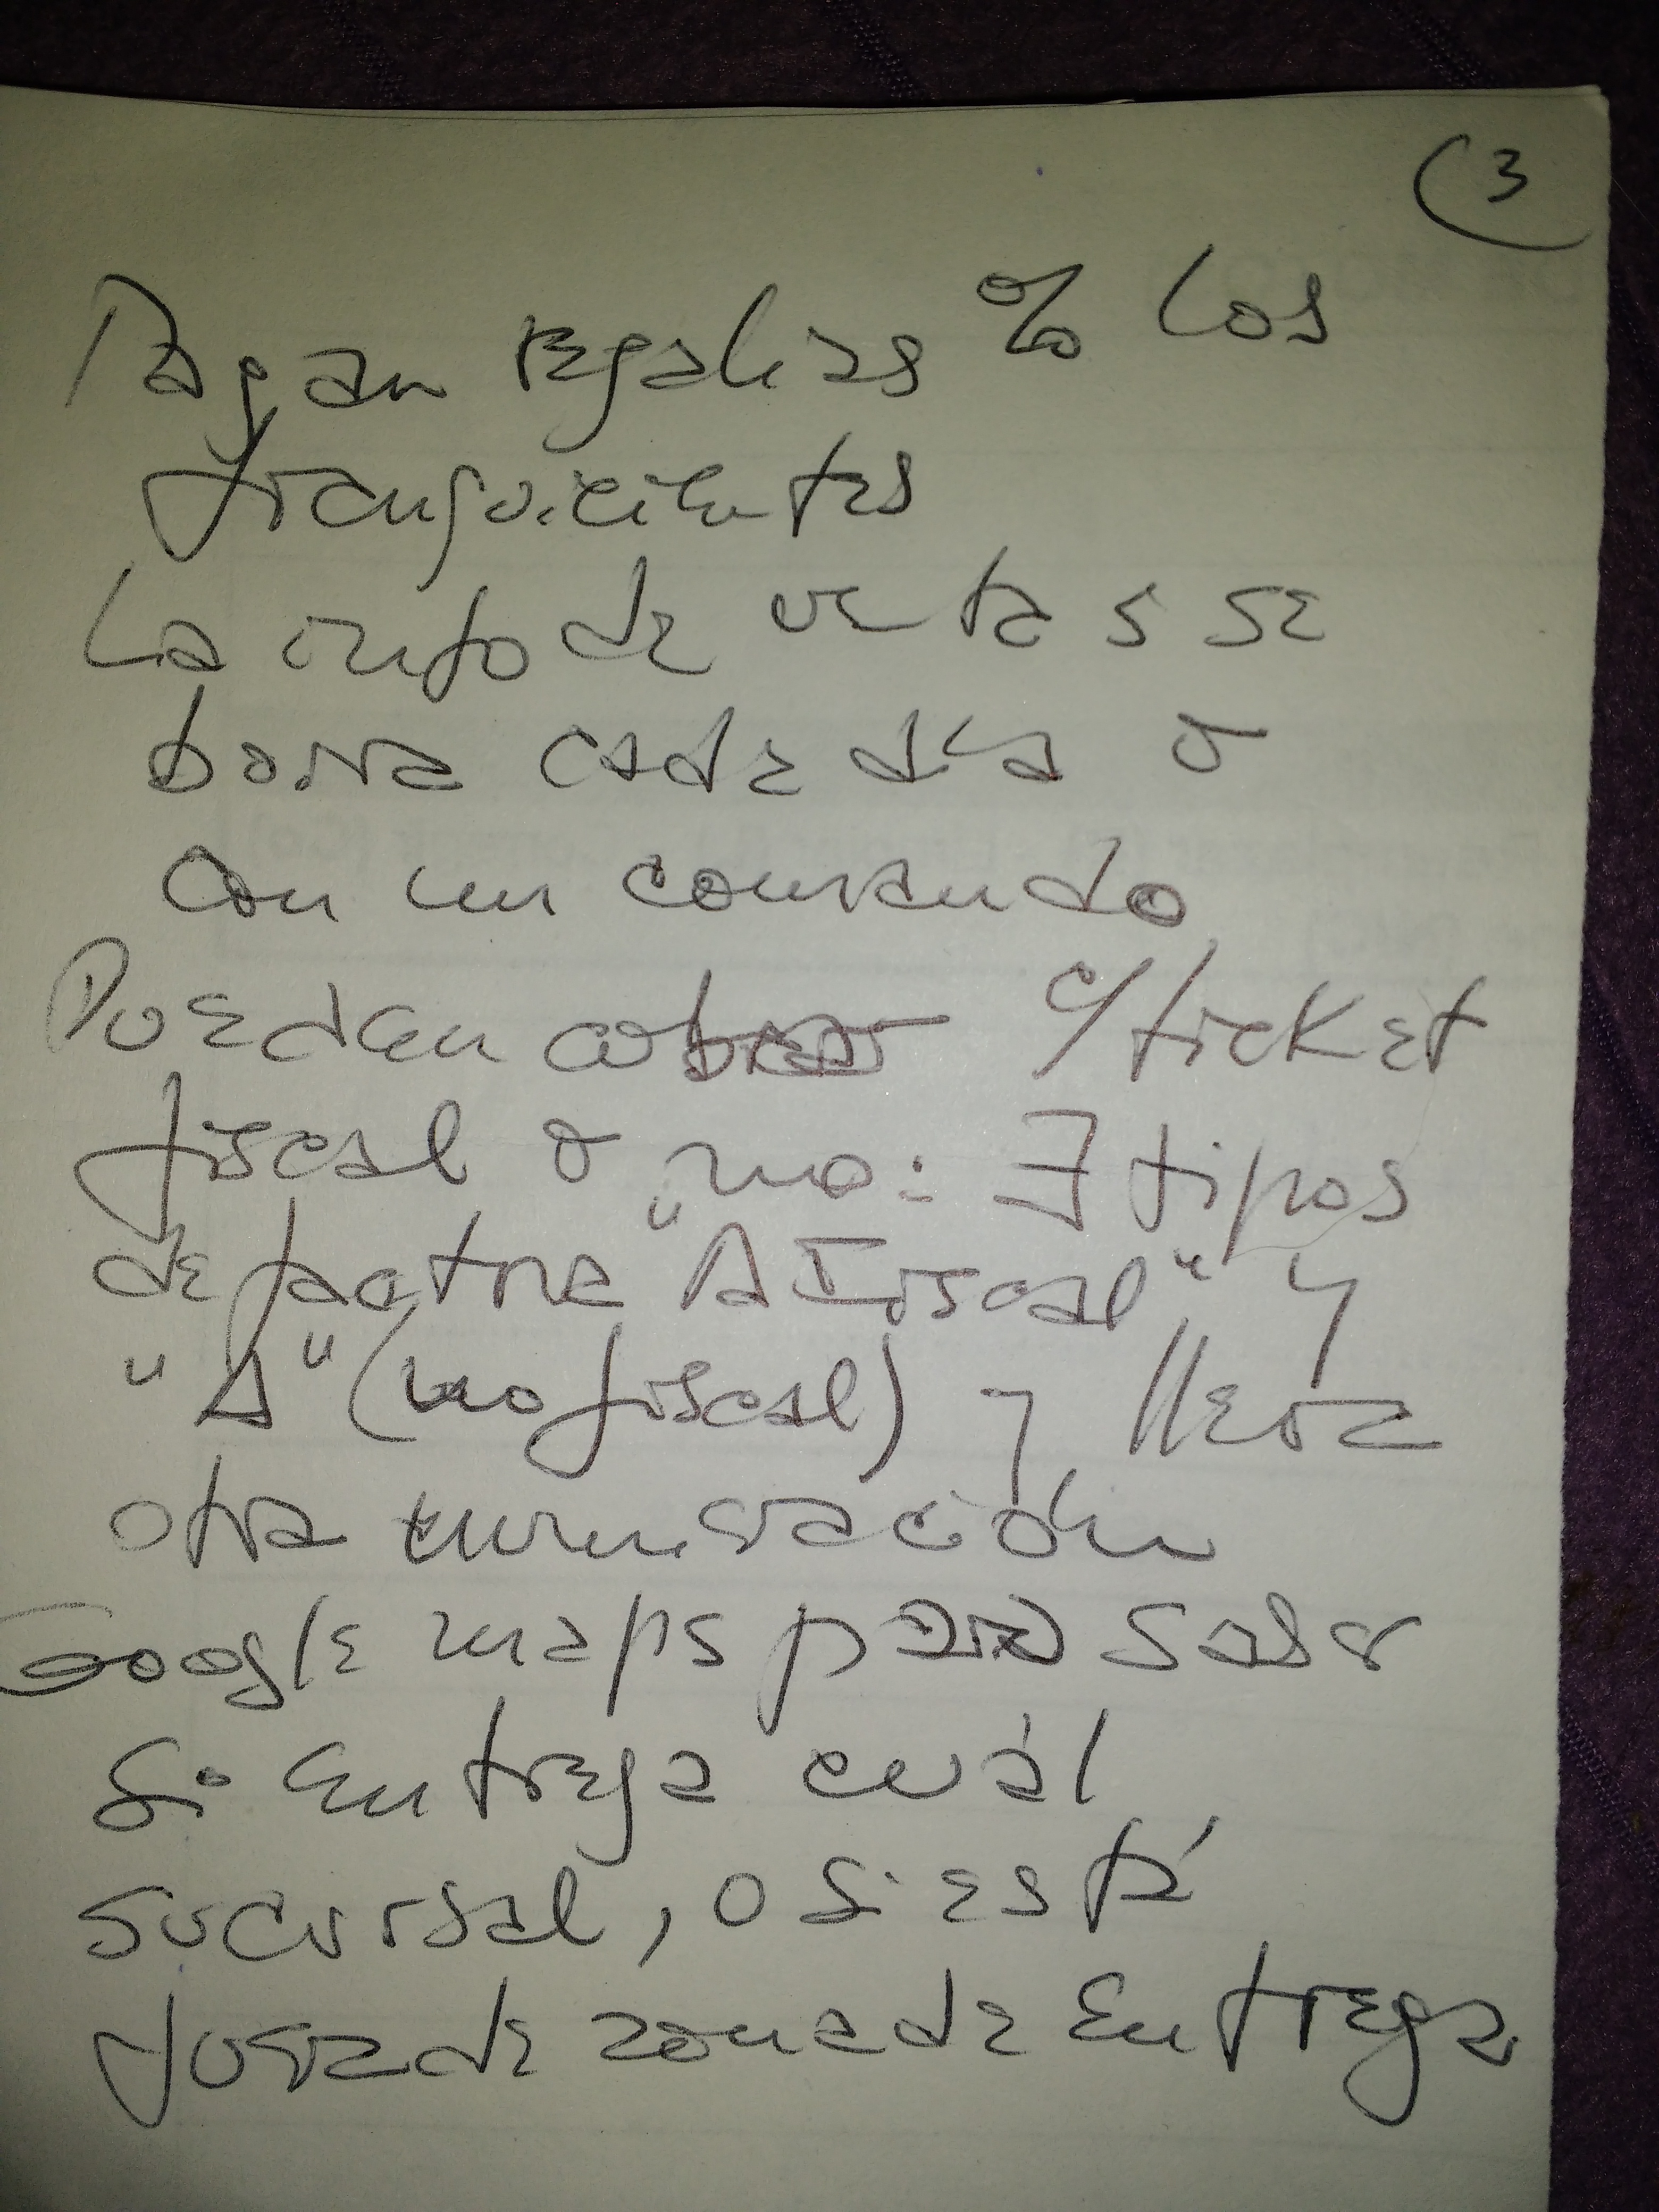 (3
Pagan regalias % los
franquicientes
La info de vetas se
borra cada día o
con un comando
Pueden cobrar c/ticket
fiscal o no: ∃ tipos
de factura "A Fiscal" y
"A" (no fiscal) y lleva
otra numeración
Google maps para saber
si entrega cuál
sucursal, o si está
fuera de zona de entrega